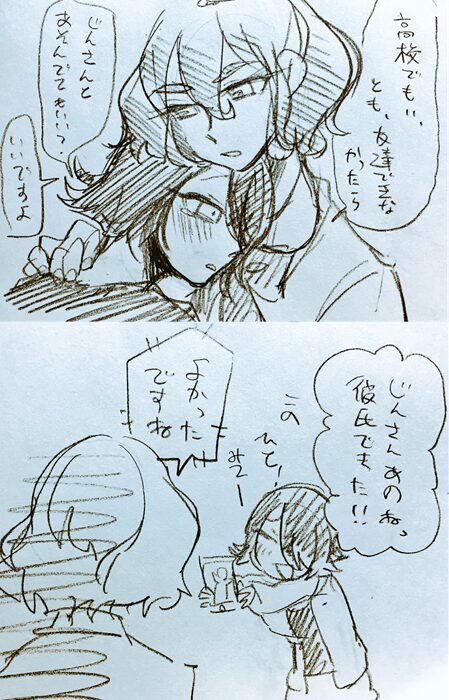 高校でもし、
とも、友達できな
かったら
じんさんと
あそんでてもいい?
いいですよ
じんさんあのねっ
彼氏できた!!
この
ひと!
みてー
よかった
ですね